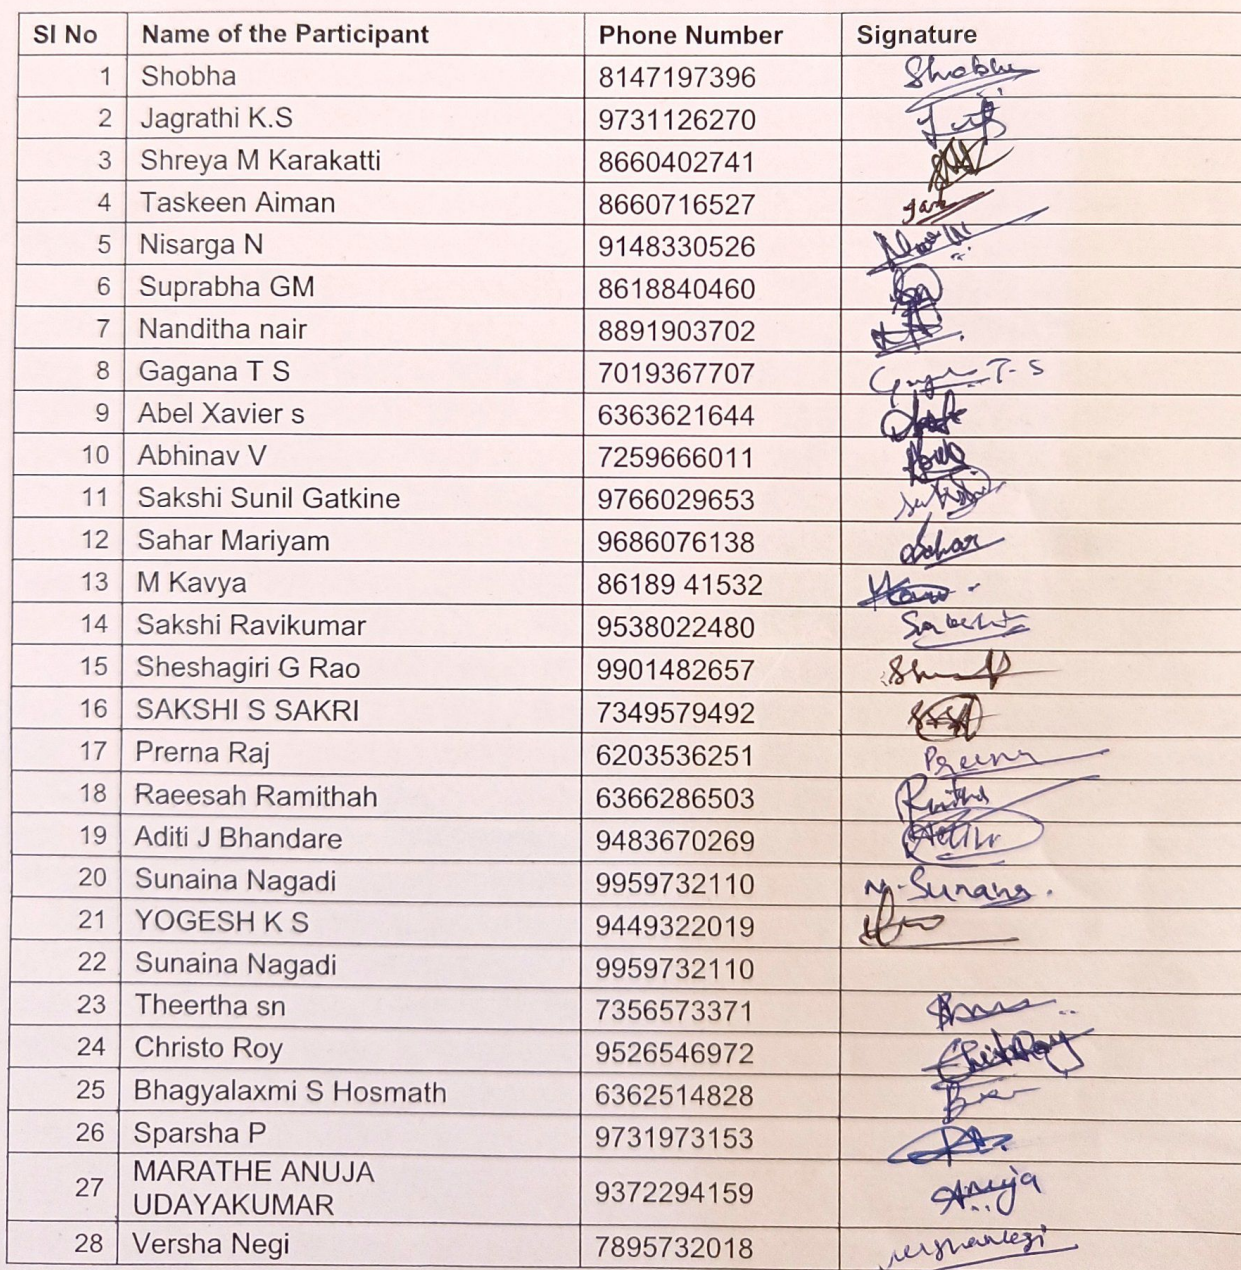 Sl No Name of the Participant Phone Number Signature
1 Shobha 8147197396 Shobha
2 Jagrathi K.S 9731126270
3 Shreya M Karakatti 8660402741
4 Taskeen Aiman 8660716527
5 Nisarga N 9148330526
6 Suprabha GM 8618840460
7 Nanditha nair 8891903702
8 Gagana T S 7019367707 T-S
9 Abel Xavier s 6363621644
10 Abhinav V 7259666011
11 Sakshi Sunil Gatkine 9766029653
12 Sahar Mariyam 9686076138 Sahar
13 M Kavya 86189 41532
14 Sakshi Ravikumar 9538022480
15 Sheshagiri G Rao 9901482657
16 SAKSHI S SAKRI 7349579492
17 Prerna Raj 6203536251 Prerna
18 Raeesah Ramithah 6366286503
19 Aditi J Bhandare 9483670269
20 Sunaina Nagadi 9959732110 N. Sunaina.
21 YOGESH K S 9449322019
22 Sunaina Nagadi 9959732110
23 Theertha sn 7356573371
24 Christo Roy 9526546972 Christo Roy
25 Bhagyalaxmi S Hosmath 6362514828
26 Sparsha P 9731973153
27 MARATHE ANUJA
UDAYAKUMAR 9372294159 Anuja
28 Versha Negi 7895732018 vershanegi